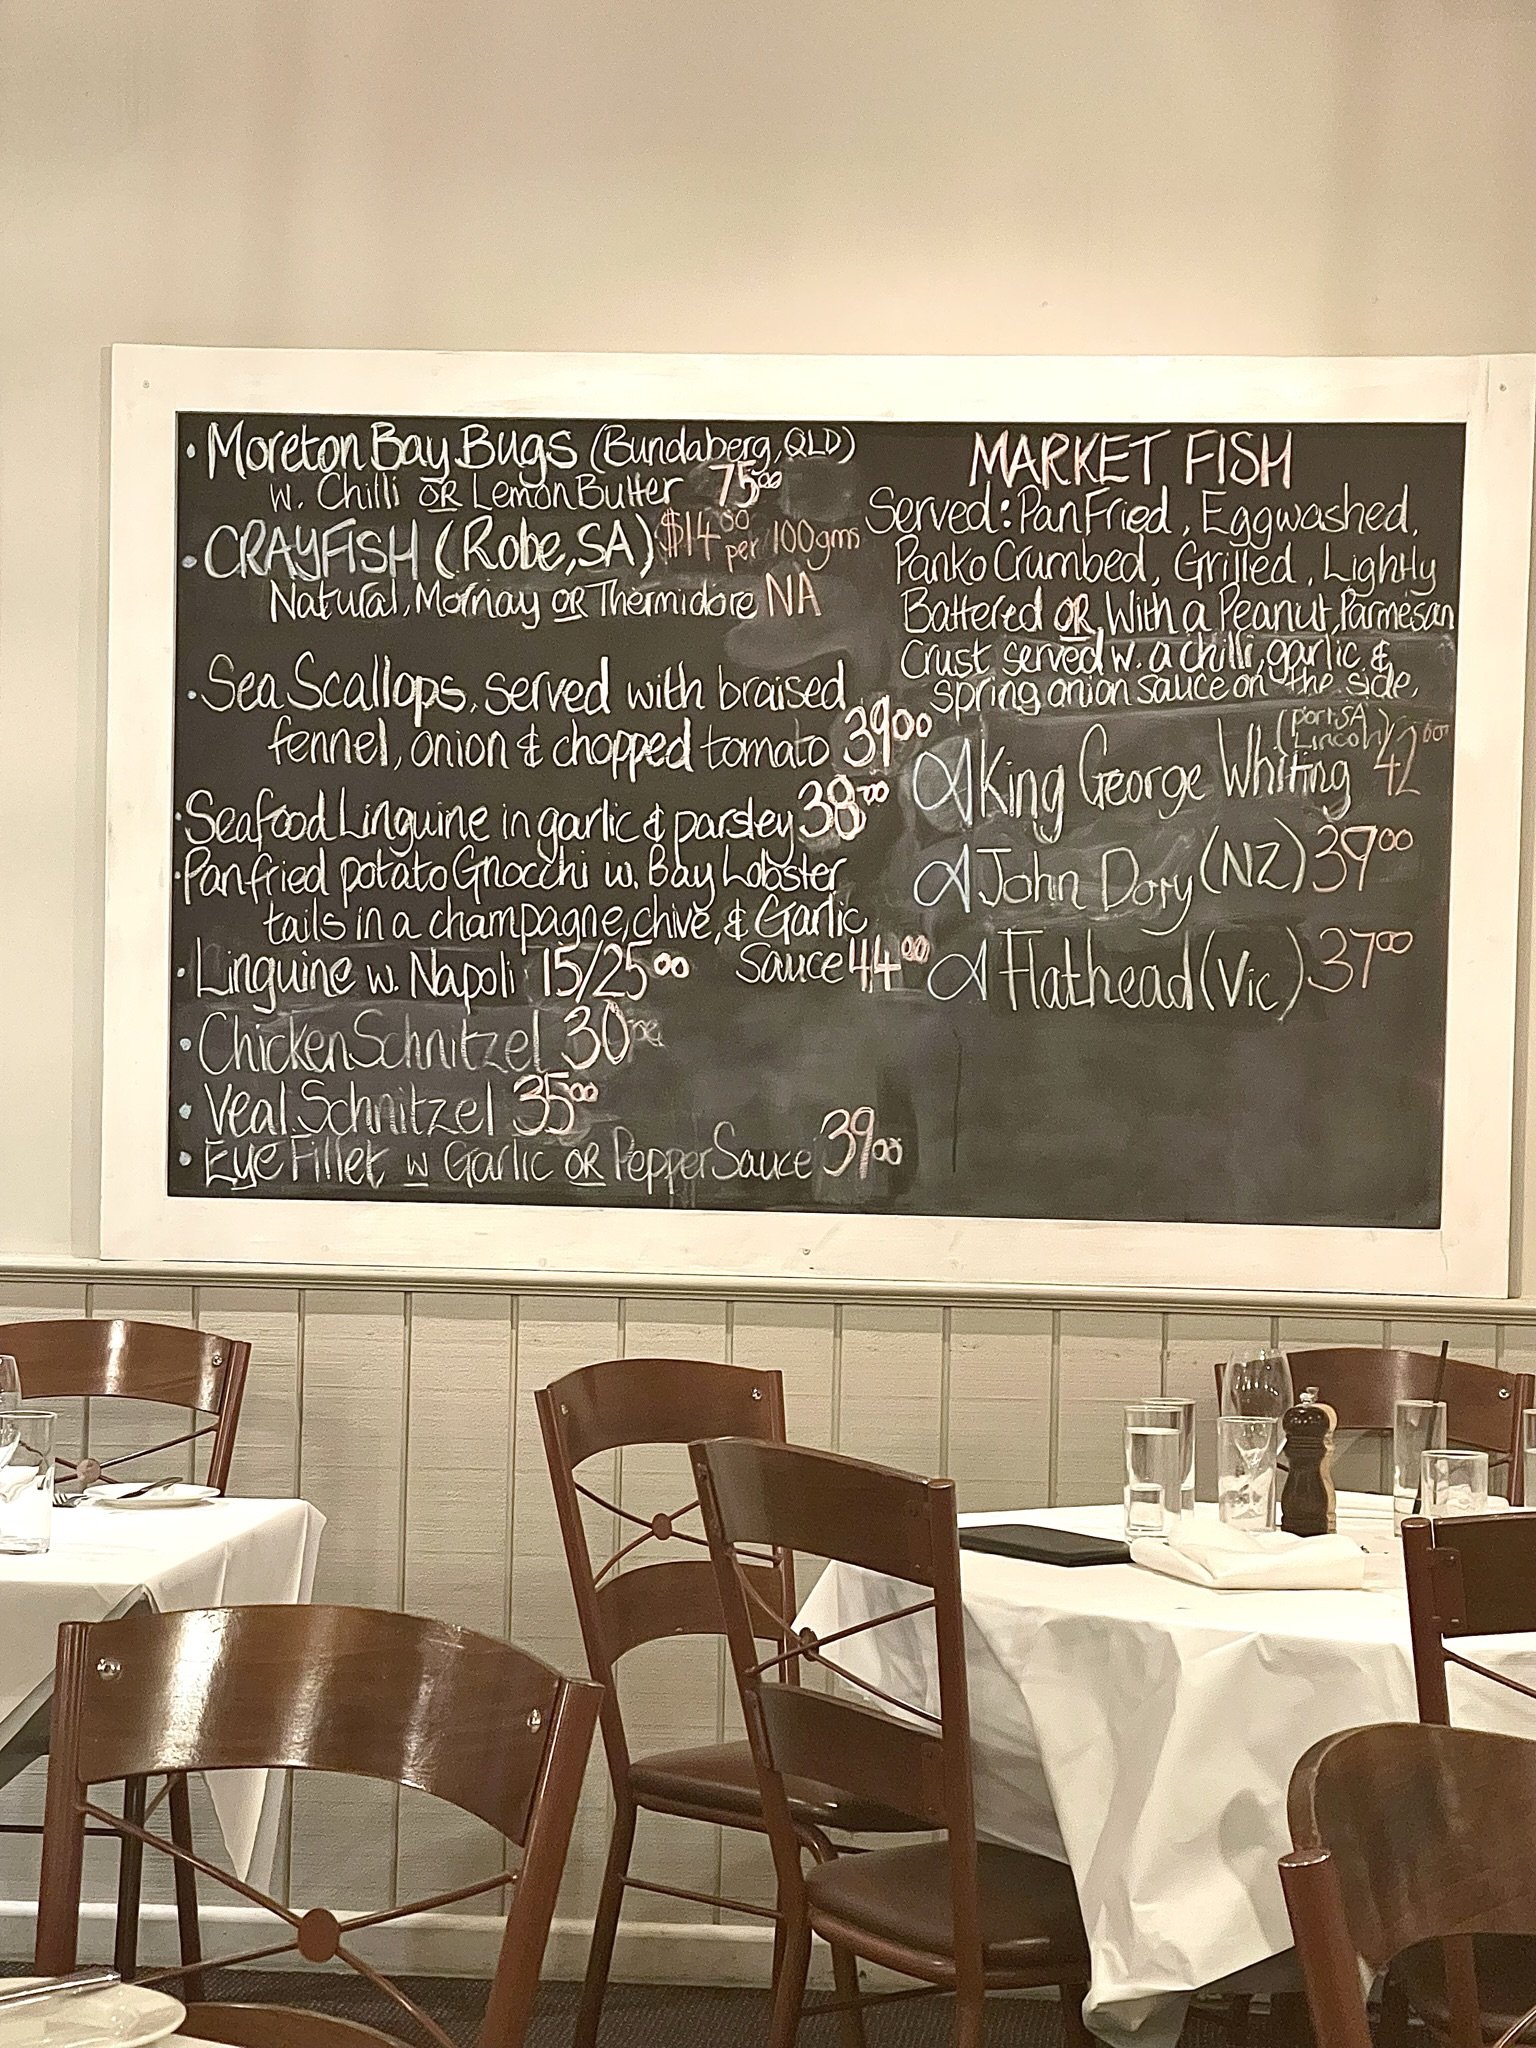 • Moreton Bay Bugs (Bundaberg, QLD)
w. Chilli OR Lemon Butter 75⁰⁰
• CRAYFISH (Robe, SA) $14⁵⁰ per 100gms
Natural, Mornay OR Thermidore NA
• Sea Scallops, served with braised
fennel, onion & chopped tomato 39⁰⁰
• Seafood Linguine in garlic & parsley 38⁰⁰
• Pan-fried potato Gnocchi w. Bay Lobster
tails in a champagne, chive, & Garlic
Sauce 44⁰⁰
• Linguine w. Napoli 15/25⁰⁰
• Chicken Schnitzel 30⁰⁰
• Veal Schnitzel 35⁰⁰
• Eye Fillet w Garlic OR Pepper Sauce 39⁰⁰
MARKET FISH
Served: Pan Fried, Eggwashed,
Panko Crumbed, Grilled, Lightly
Battered OR With a Peanut, Parmesan
Crust served w. a chilli, garlic &
spring onion sauce on the side,
King George Whiting (Port Lincoln SA) 42⁰⁰
John Dory (NZ) 39⁰⁰
Flathead (Vic) 37⁰⁰